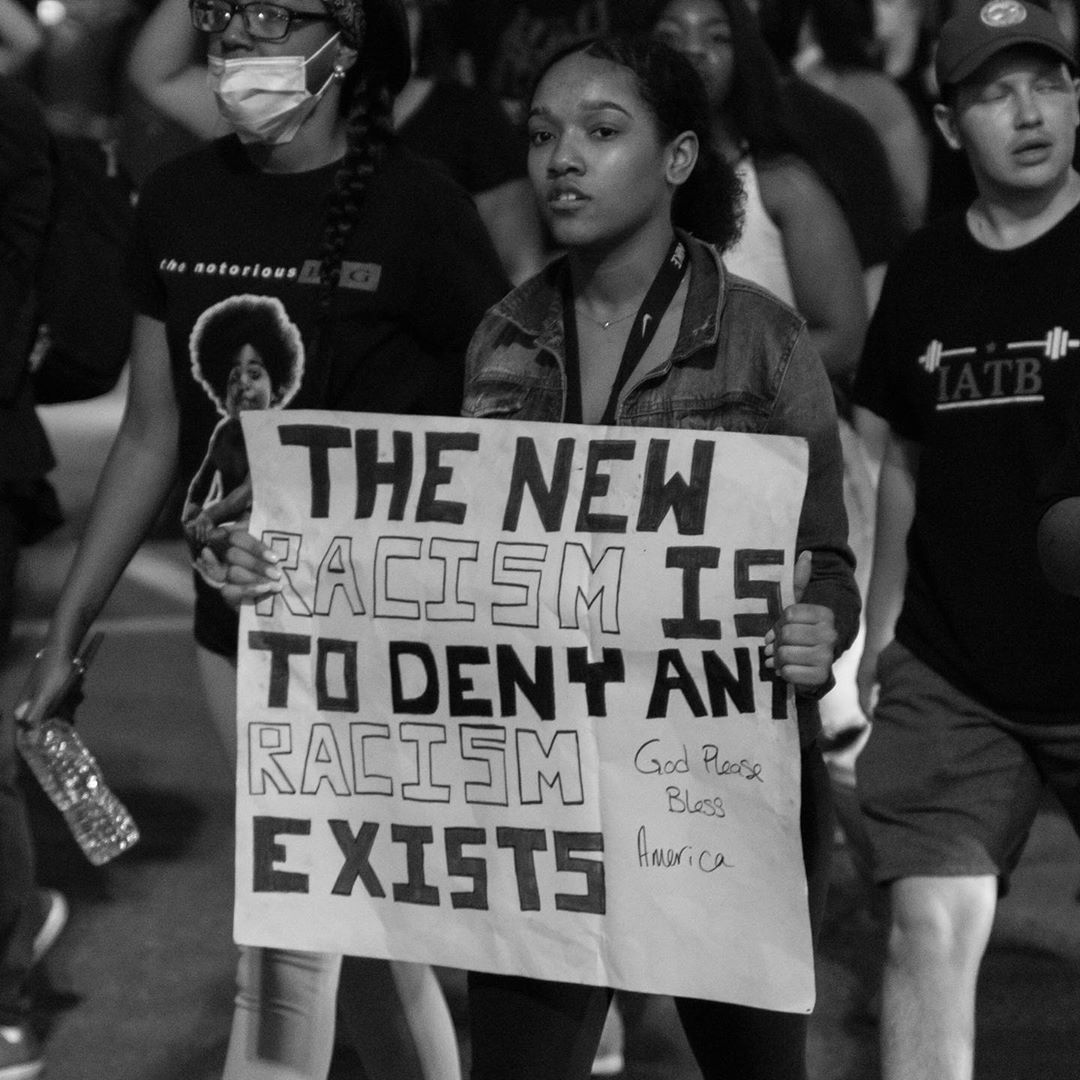 the notorious
IATB
THE NEW
RACISM IS
TO DENY ANY
RACISM
EXISTS
God Please
Bless
America